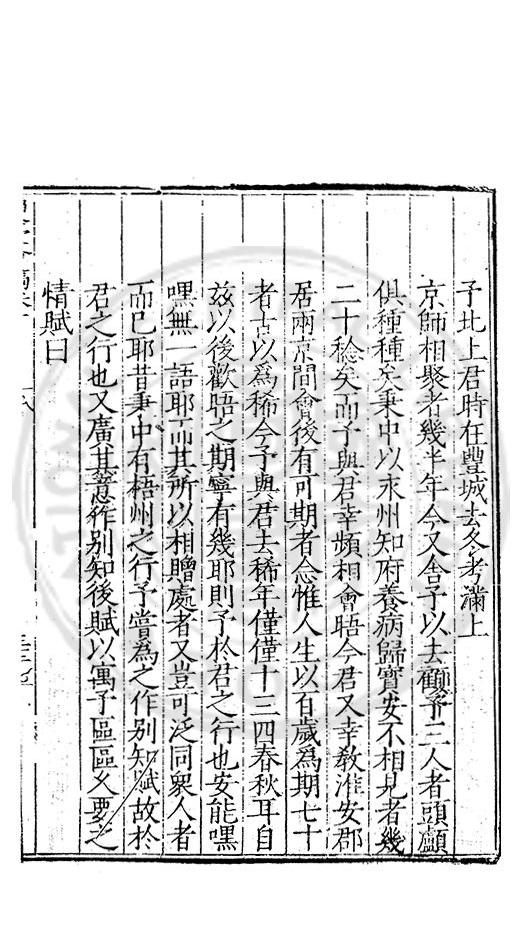 予北上君時在豐城去冬考滿上
京師相聚者幾半年今又舍予以去顧予三人者頭顱
俱種種矣秉中以永州知府養病歸寶安不相見者幾
二十稔矣而予與君幸頻相會晤今君又幸教淮安郡
居兩京間會後有可期者念惟人生以百歲爲期七十
者古以爲稀今予與君去稀年僅僅十三四春秋耳自
茲以後歡晤之期寧有幾耶則予於君之行也安能嘿
嘿無一語耶而其所以相贈處者又豈可泛同衆人者
而已耶昔秉中有梧州之行予嘗爲之作别知賦故於
君之行也又廣其意作别知後賦以寓予區區久要之
情賦曰